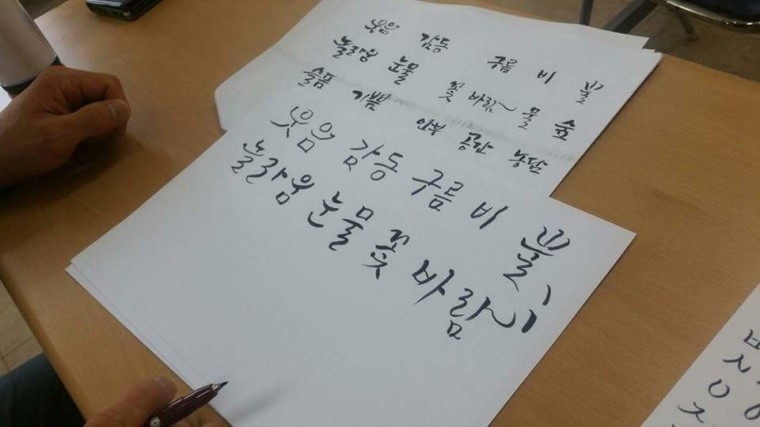 웃음 감동 구름 비
놀라움 눈물 꽃 바람~ 물 숲
슬픔 기쁨 안부 농담
웃음 감동 구름 비
놀라움 눈물 꽃 바람~